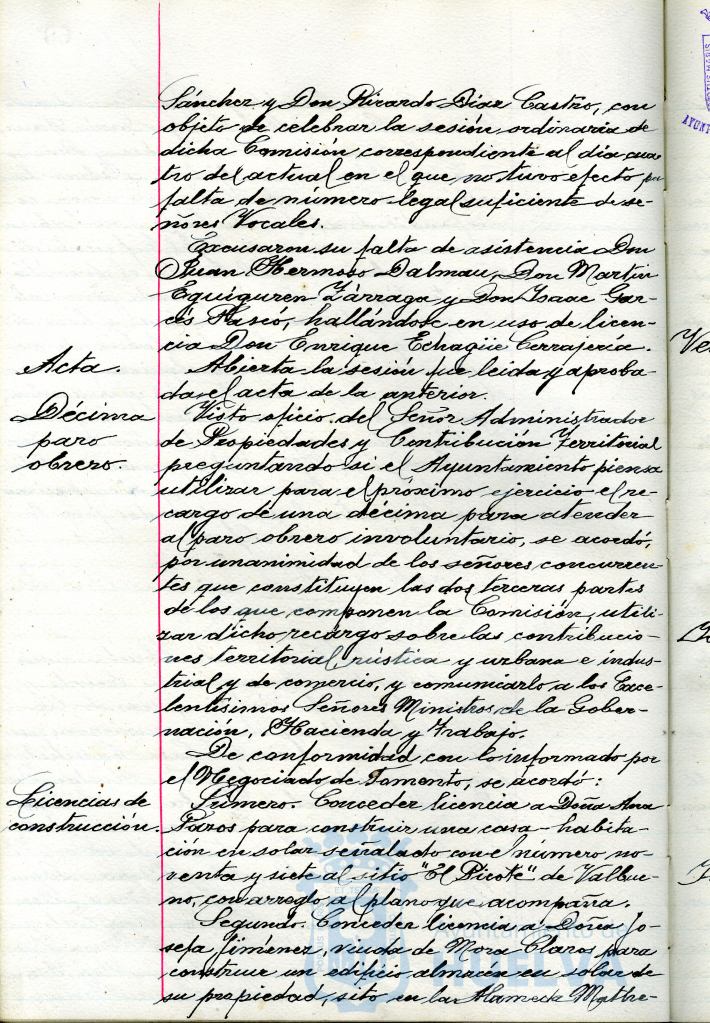 Sánchez y Don Ricardo Díaz Castro, con
objeto de celebrar la sesión ordinaria de
dicha Comisión correspondiente al día cua-
tro del actual en el que no tuvo efecto por
falta de número legal suficiente de se-
ñores Vocales.
Excusaron su falta de asistencia Don
Juan Hermoso Dalmau, Don Martin
Eguiguren Zárraga y Don Isaac Gar-
cés Pascó, hallándose en uso de licen-
cia Don Enrique Echagüe Cerrajería.
Acta.
Abierta la sesión fue leida y aproba-
da el acta de la anterior.
Décima
paro
obrero.
Visto oficio del Señor Administrador
de Propiedades y Contribución Territorial
preguntando si el Ayuntamiento piensa
utilizar para el próximo ejercicio el re-
cargo de una décima para atender
al paro obrero involuntario, se acordó,
por unanimidad de los señores concurren-
tes que constituyen las dos terceras partes
de los que componen la Comisión, utili-
zar dicho recargo sobre las contribucio-
nes territorial rústica y urbana e indus-
trial y de comercio, y comunicarlo a los Exce-
lentísimos Señores Ministros de la Gober-
nación, Hacienda y Trabajo.
De conformidad con lo informado por
el Negociado de Fomento, se acordó:
Licencias de
construcción.
Primero. Conceder licencia a Doña Ana
para construir una casa-habita-
ción en solar señalado con el número no-
venta y siete al sitio "El Picote" de Valbue-
no, con arreglo al plano que acompaña.
Segundo. Conceder licencia a Doña Jo-
sefa Jiménez, viuda de Mora Claros para
construir un edificio almacén en solar de
su propiedad, sito en la Alameda
HUELVA